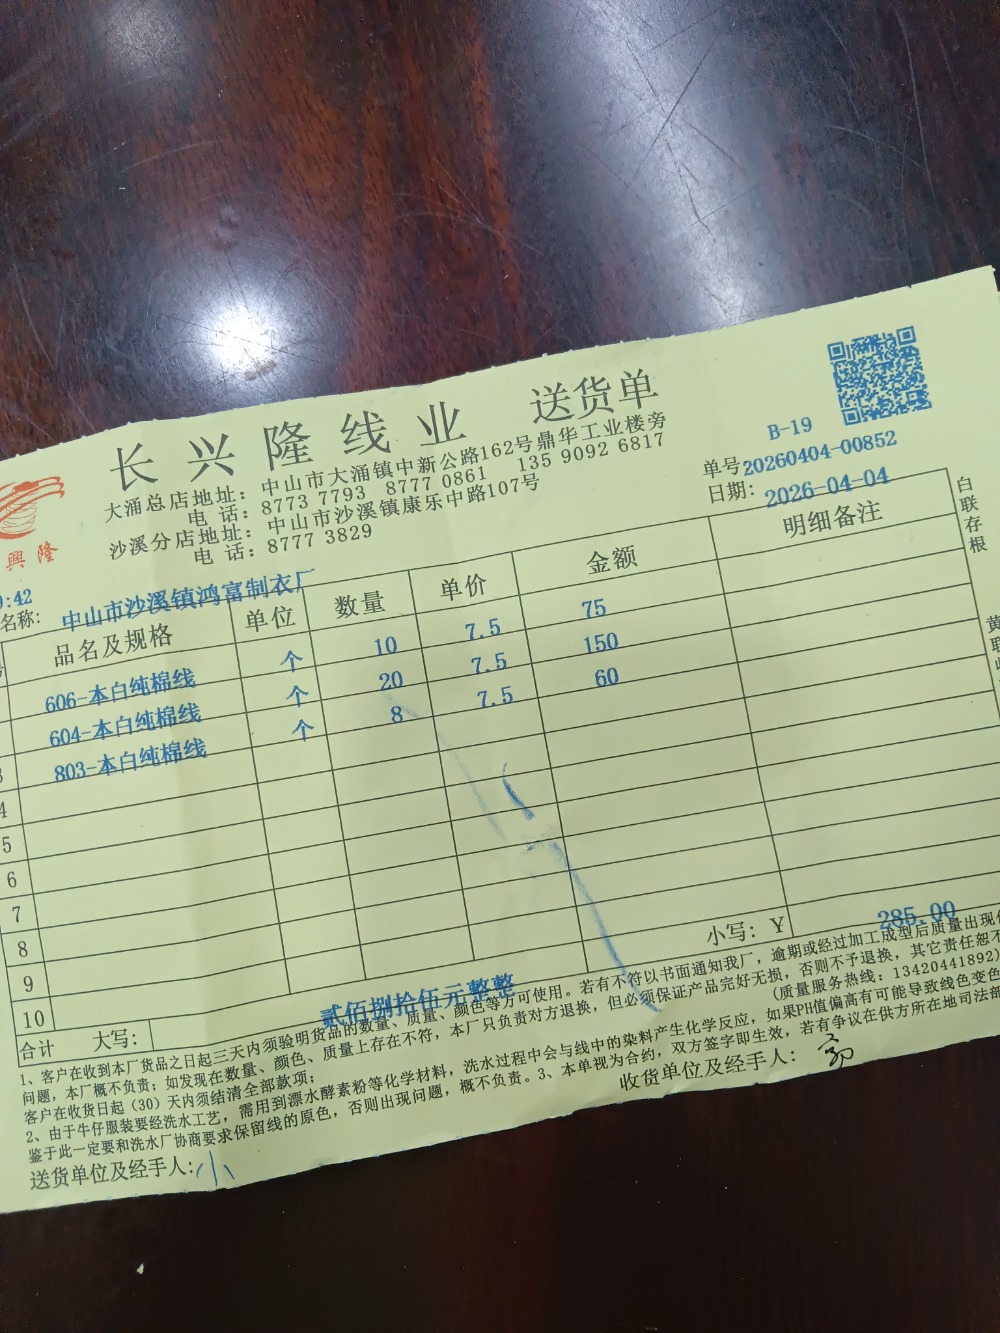 長 兴 隆 线 业 送货单
大涌总店地址：中山市大涌镇中新公路162号鼎华工业楼旁
电 话：8773 7793 8777 0861 135 9092 6817
沙溪分店地址：中山市沙溪镇康乐中路107号
电 话：8777 3829
興 隆
B-19
单号20260404-00852
日期：2026-04-04
9:42
名称：中山市沙溪镇鸿富制衣厂
品名及规格 单位 数量 单价 金额 明细备注
606-本白纯棉线 个 10 7.5 75
604-本白纯棉线 个 20 7.5 150
3 803-本白纯棉线 个 8 7.5 60
4
5
6
7
8
9
10
合计 大写：贰佰捌拾伍元整整 小写：¥ 285.00
白联存根
黄联
1、客户在收到本厂货品之日起三天内须验明货品的数量、质量、颜色等方可使用。若有不符以书面通知我厂，逾期或经过加工成型后质量出现
问题，本厂概不负责；如发现在数量、颜色、质量上存在不符，本厂只负责对方退换，但必须保证产品完好无损，否则不予退换，其它责任恕不
客户在收货日起（30）天内须结清全部款项； （质量服务热线：13420441892）
2、由于牛仔服装要经洗水工艺，需用到漂水酵素粉等化学材料，洗水过程中会与线中的染料产生化学反应，如果PH值偏高有可能导致线色变色
鉴于此一定要和洗水厂协商要求保留线的原色，否则出现问题，概不负责。3、本单视为合约，双方签字即生效，若有争议在供方所在地司法部
送货单位及经手人：小 收货单位及经手人：